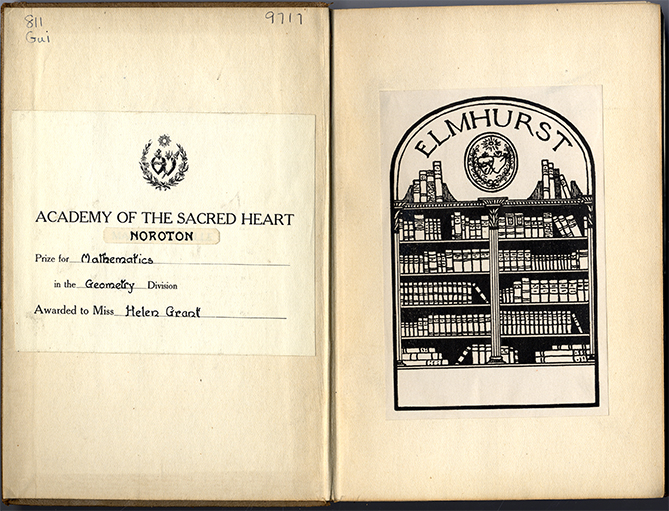 811
Gui
9717
ACADEMY OF THE SACRED HEART
NOROTON
Prize for Mathematics
in the Geometry Division
Awarded to Miss Helen Grant
ELMHURST